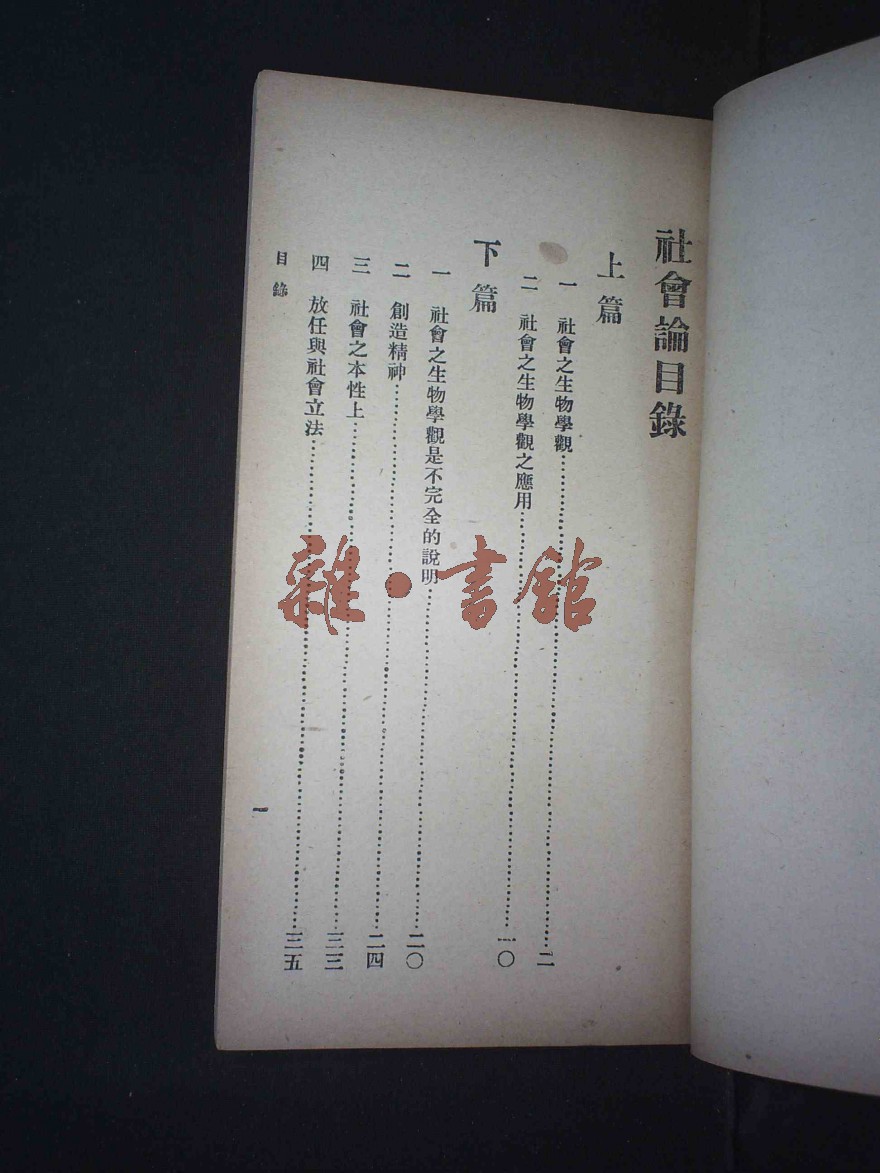 社會論目錄
上篇
一 社會之生物學觀……二
二 社會之生物學觀之應用……一〇
下篇
一 社會之生物學觀是不完全的說明……二〇
二 創造精神……二四
三 社會之本性上……三三
四 放任與社會立法……三五
目錄
一
雜·書館